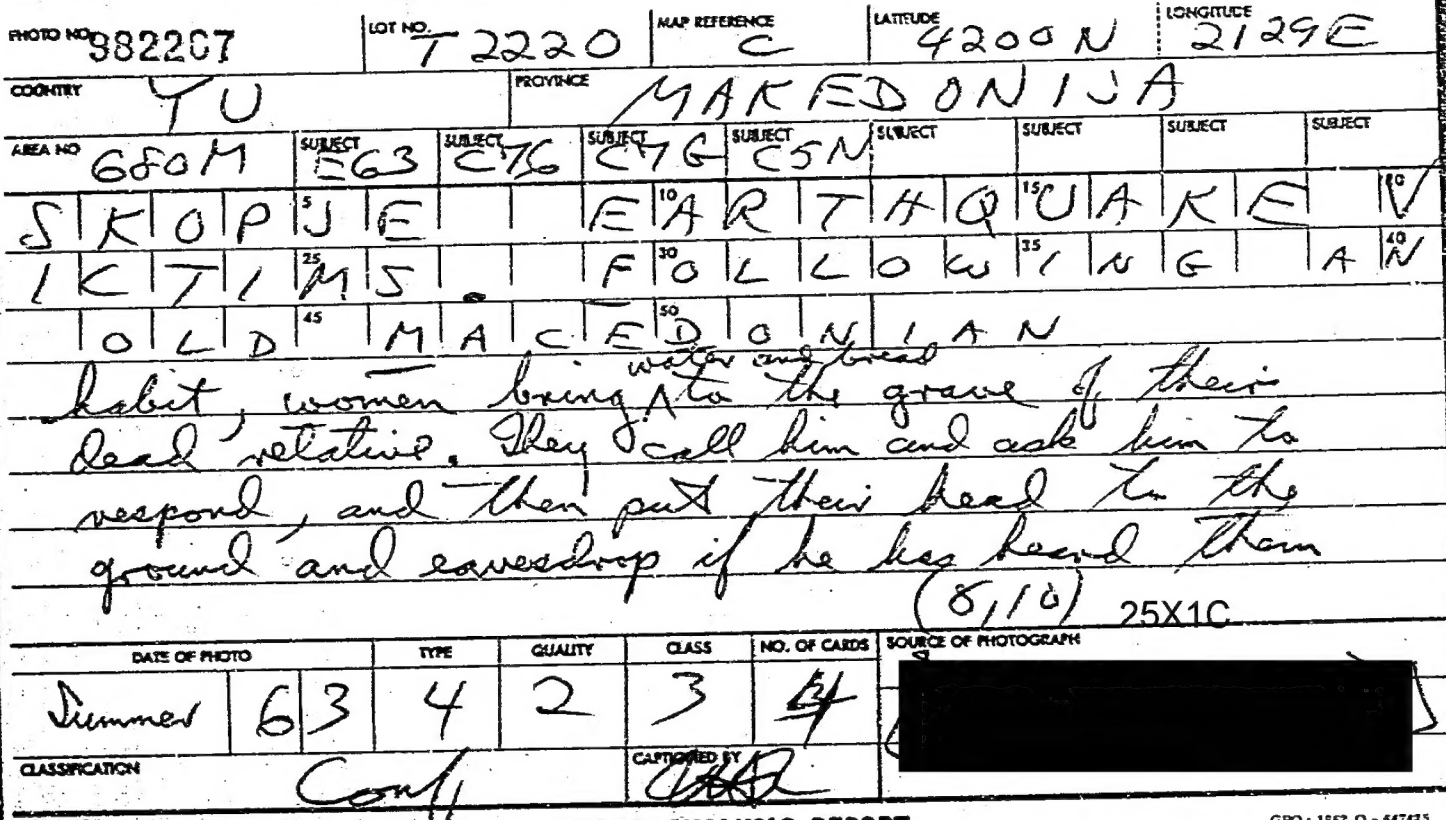 PHOTO NO. 982207 LOT NO. T 2220 MAP REFERENCE C LATITUDE 4200 N LONGITUDE 2129E
COUNTRY YU PROVINCE MAKEDONIJA
AREA NO 680M SUBJECT E63 SUBJECT C76 SUBJECT C7G SUBJECT C5N SUBJECT SUBJECT SUBJECT SUBJECT
SKOPJE EARTHQUAKE V
ICTIMS. FOLLOWING AN
OLD MACEDONIAN
water and bread
habit, women bring ^ to the grave of their
dead relative. They call him and ask him to
respond, and then put their head to the
ground and eavesdrop if he has heard them
(8,10) 25X1C
DATE OF PHOTO TYPE QUALITY CLASS NO. OF CARDS SOURCE OF PHOTOGRAPH
Summer 63 4 2 3 4
CLASSIFICATION Conf. CAPTIONED BY
REPORT
GPO : 1962 O - 647475